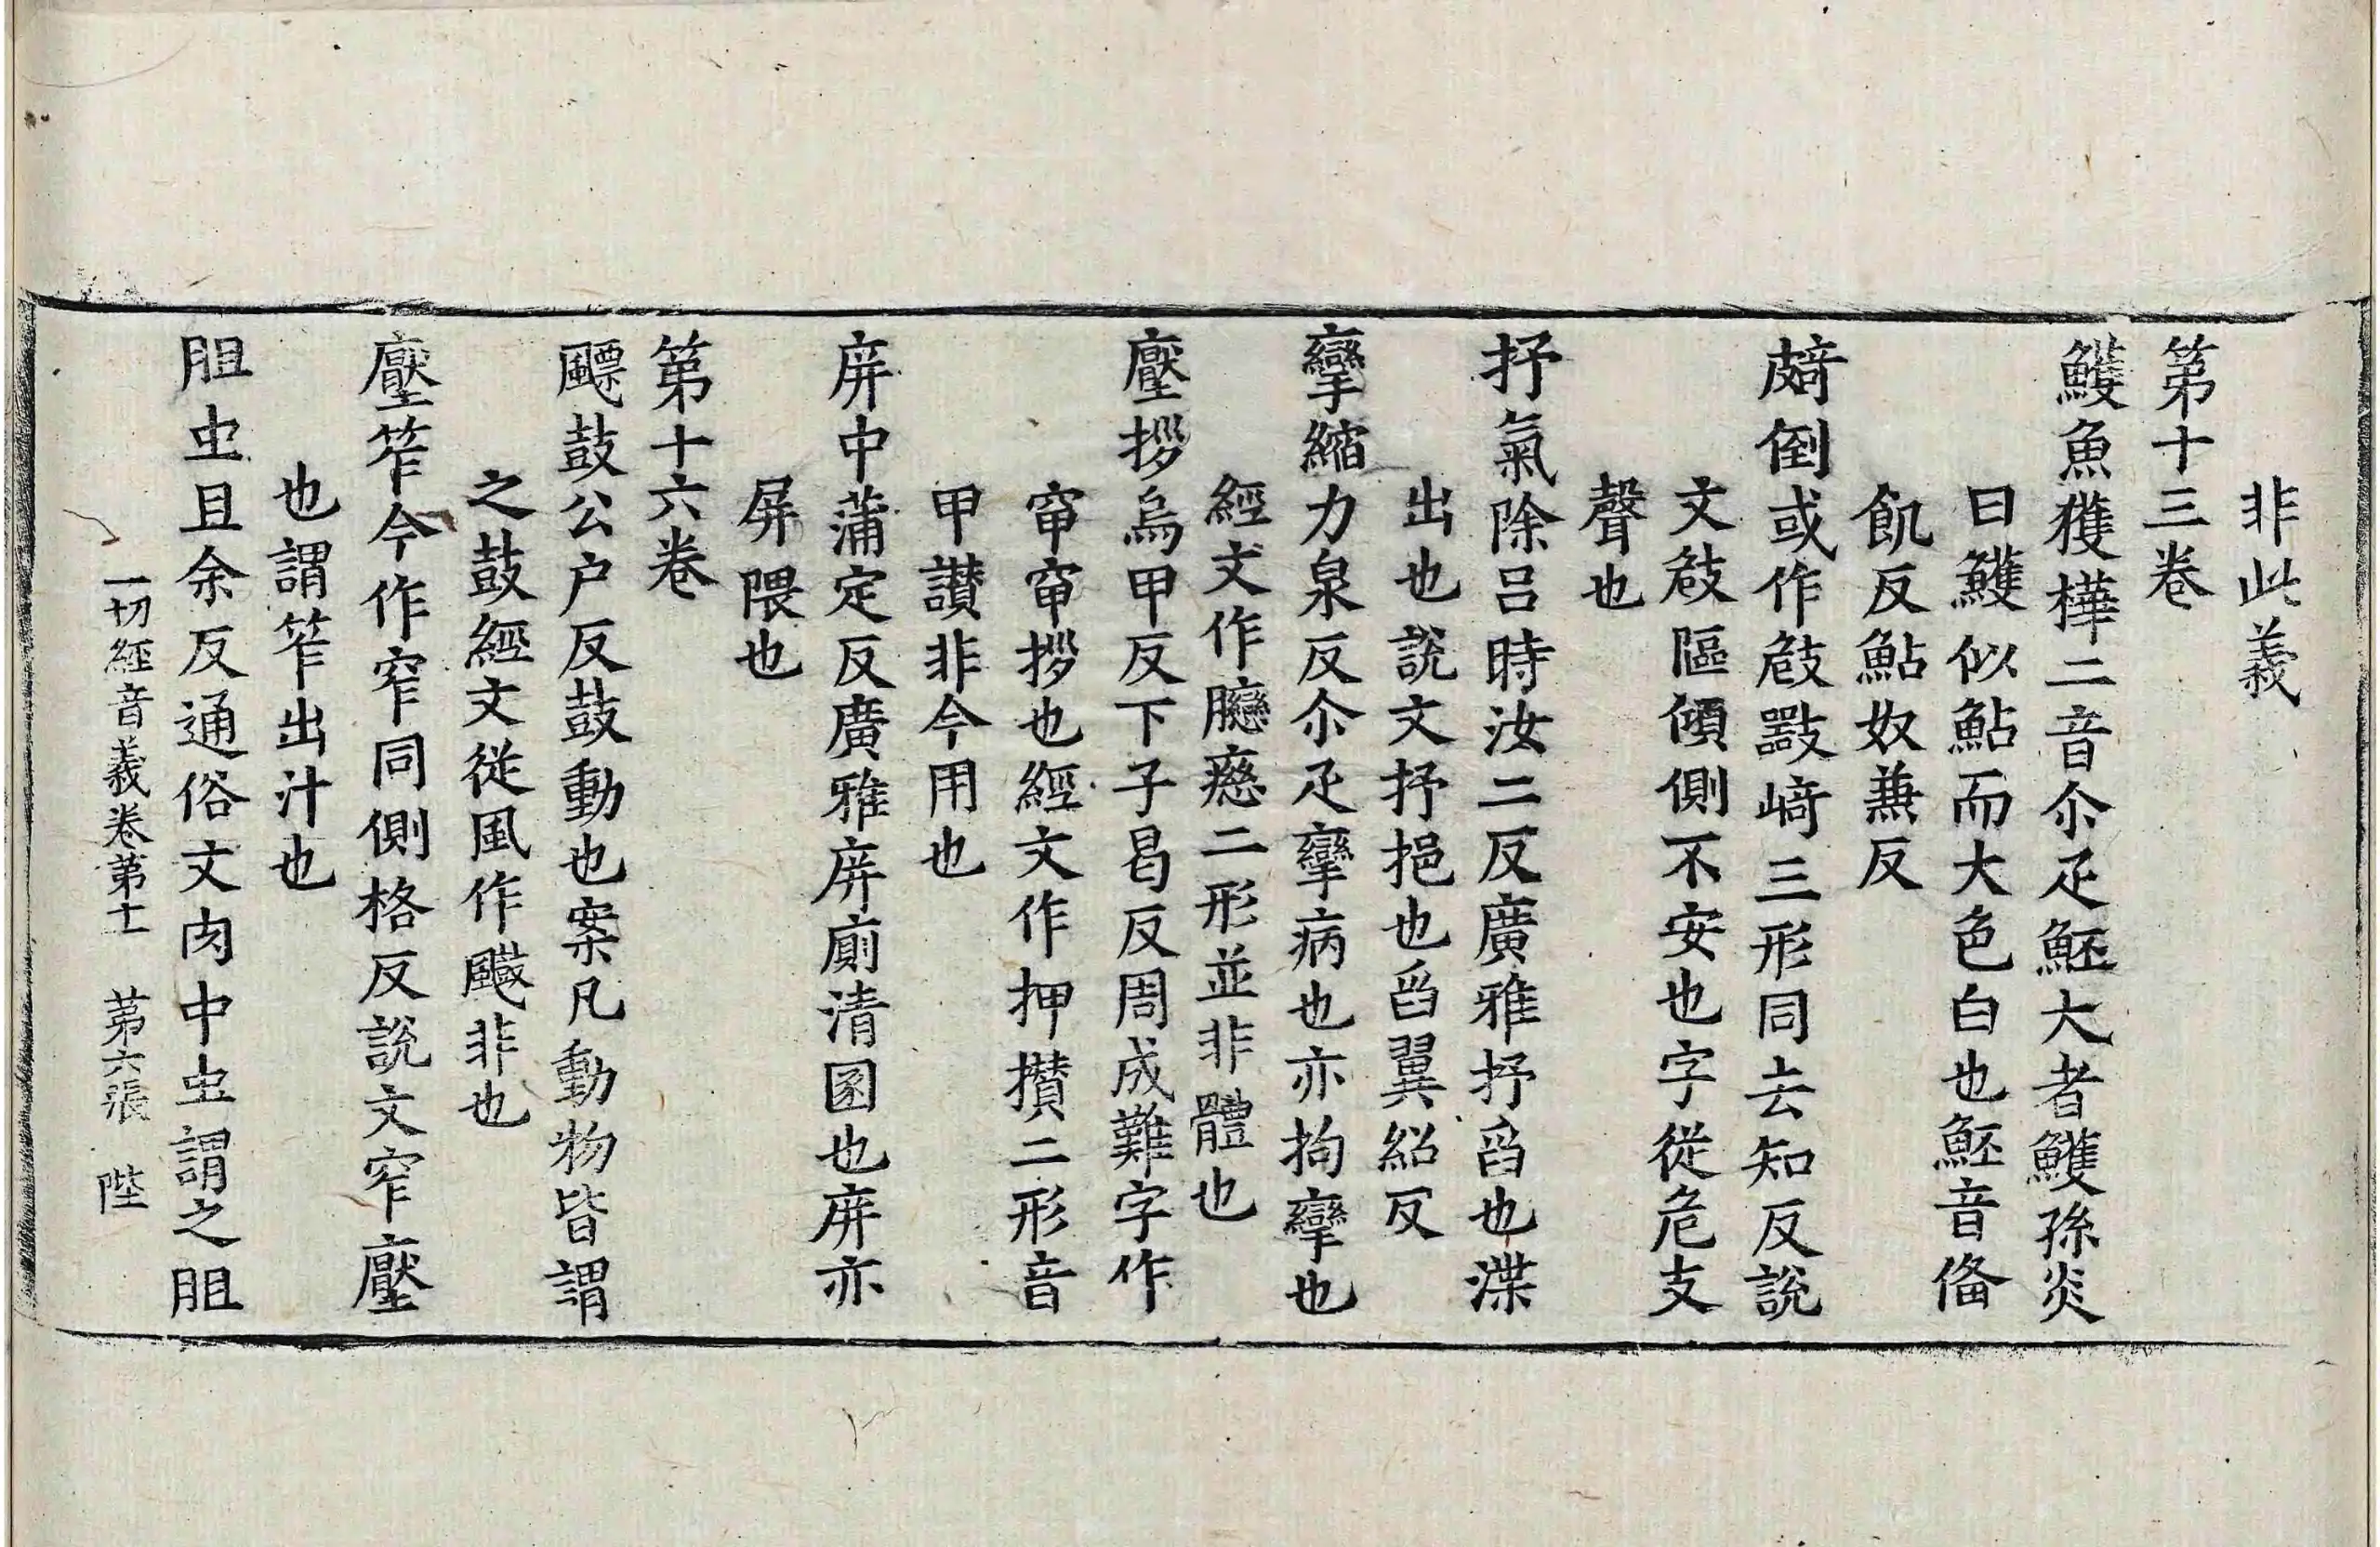 非此義
第十三卷
鱯魚獲樺二音尒疋魾大者鱯孫炎
曰鱯似鮎而大色白也魾音俻
飢反鮎奴兼反
䫌倒或作攲㩻崎三形同去知反說
文攲䧢傾側不安也字從危支
聲也
抒氣除呂時汝二反廣雅抒舀也渫
出也說文抒挹也舀翼紹反
攣縮力泉反尒疋攣病也亦拘攣也
經文作臈癋二形並非體也
壓拶烏甲反下子曷反周成難字作
窜窜拶也經文作押攅二形音
甲讃非今用也
庰中蒲定反廣雅庰廁清圂也庰亦
屏隈也
第十六卷
飃鼓公户反鼓動也案凡動物皆謂
之鼓經文從風作䬝非也
壓笮今作窄同側格反說文窄壓
也謂笮出汁也
胆虫且余反通俗文肉中虫謂之胆
一切經音義卷第十一 第六張 陛